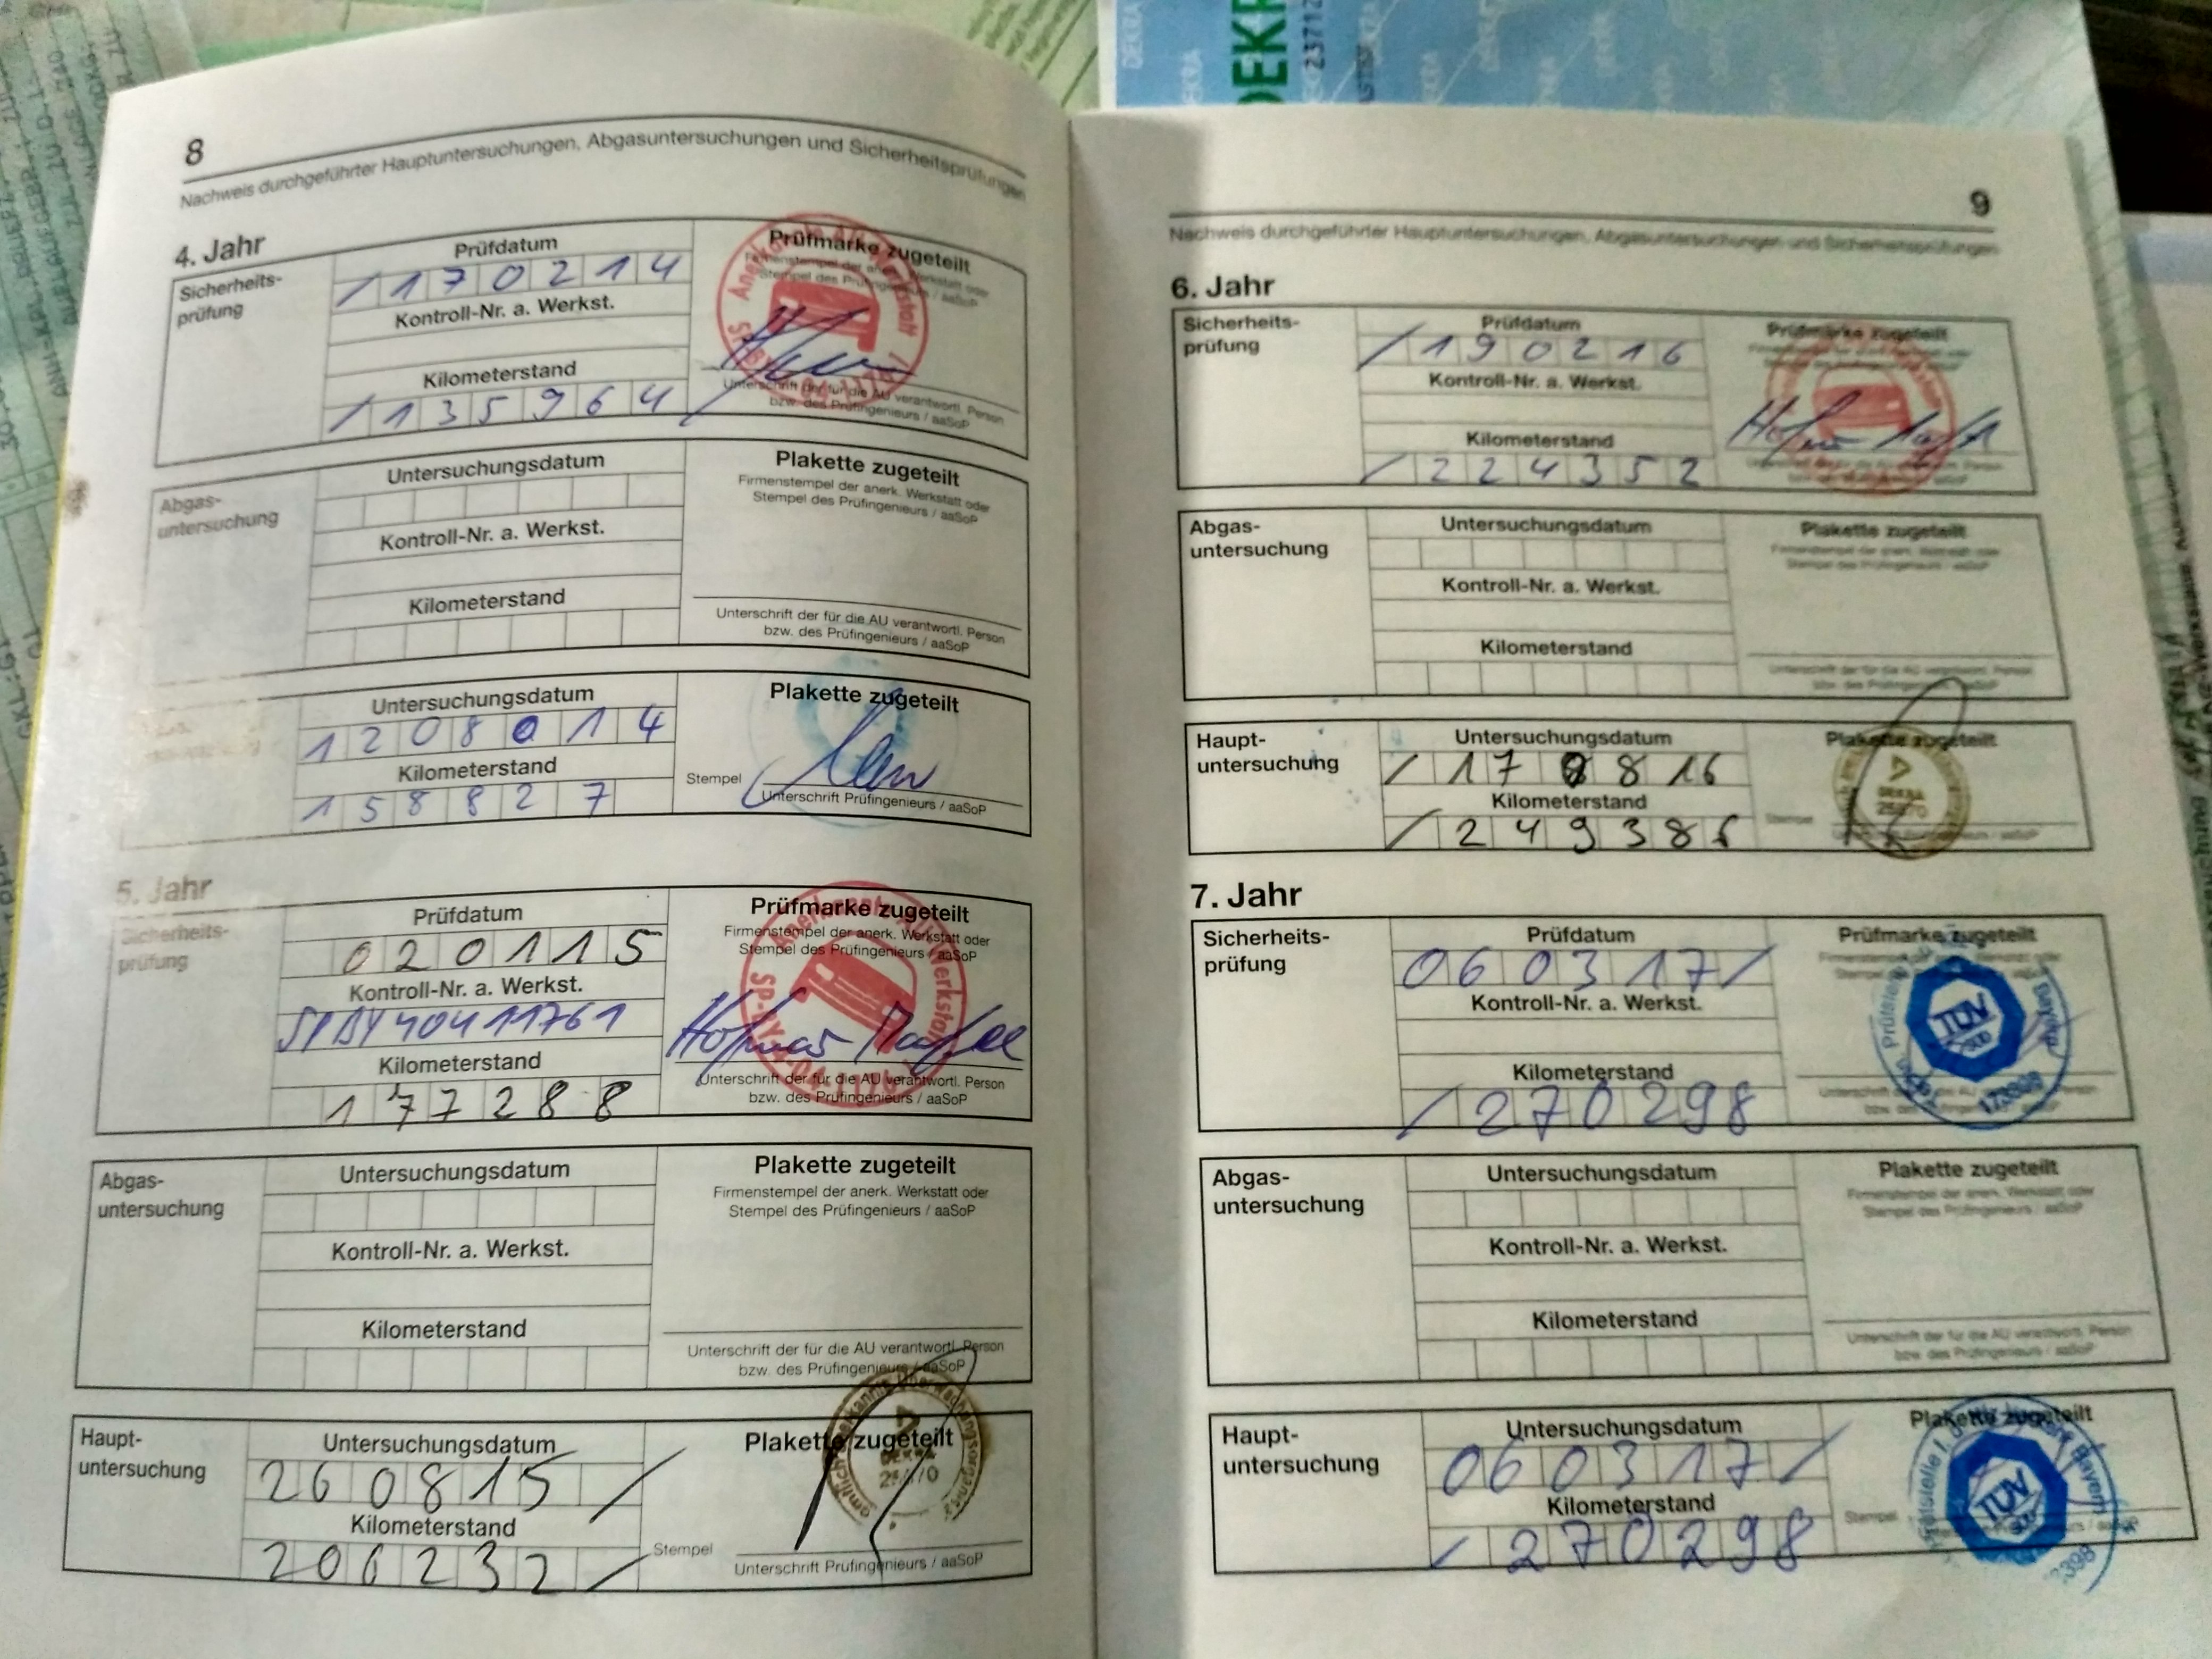 8
Nachweis durchgeführter Hauptuntersuchungen, Abgasuntersuchungen und Sicherheitsprüfungen
4. Jahr
Sicherheits-
prüfung
Prüfdatum
/ 1 7 0 2 1 4
Kontroll-Nr. a. Werkst.
Kilometerstand
/ 1 3 5 9 6 4
Prüfmarke zugeteilt
Unterschrift der für die AU verantwortl. Person
bzw. des Prüfingenieurs / aaSoP
Abgas-
untersuchung
Untersuchungsdatum
Kontroll-Nr. a. Werkst.
Kilometerstand
Plakette zugeteilt
Firmenstempel der anerk. Werkstatt oder
Stempel des Prüfingenieurs / aaSoP
Unterschrift der für die AU verantwortl. Person
bzw. des Prüfingenieurs / aaSoP
Untersuchungsdatum
1 2 0 8 0 1 4
Kilometerstand
1 5 8 8 2 7
Plakette zugeteilt
Stempel
Unterschrift Prüfingenieurs / aaSoP
5. Jahr
Sicherheits-
prüfung
Prüfdatum
0 2 0 1 1 5
Kontroll-Nr. a. Werkst.
SPBY40411761
Kilometerstand
1 7 7 2 8 8
Prüfmarke zugeteilt
Firmenstempel der anerk. Werkstatt oder
Stempel des Prüfingenieurs / aaSoP
Unterschrift der für die AU verantwortl. Person
bzw. des Prüfingenieurs / aaSoP
Abgas-
untersuchung
Untersuchungsdatum
Kontroll-Nr. a. Werkst.
Kilometerstand
Plakette zugeteilt
Firmenstempel der anerk. Werkstatt oder
Stempel des Prüfingenieurs / aaSoP
Unterschrift der für die AU verantwortl. Person
bzw. des Prüfingenieurs / aaSoP
Haupt-
untersuchung
Untersuchungsdatum
2 6 0 8 1 5 /
Kilometerstand
2 0 6 2 3 2 /
Plakette zugeteilt
DEKRA
Stempel
Unterschrift Prüfingenieurs / aaSoP
9
Nachweis durchgeführter Hauptuntersuchungen, Abgasuntersuchungen und Sicherheitsprüfungen
6. Jahr
Sicherheits-
prüfung
Prüfdatum
/ 1 9 0 2 1 6
Kontroll-Nr. a. Werkst.
Kilometerstand
/ 2 2 4 3 5 2
Prüfmarke zugeteilt
Abgas-
untersuchung
Untersuchungsdatum
Kontroll-Nr. a. Werkst.
Kilometerstand
Plakette zugeteilt
Haupt-
untersuchung
Untersuchungsdatum
/ 1 7 0 8 1 6
Kilometerstand
/ 2 4 9 3 8 6
Plakette zugeteilt
DEKRA
Stempel
7. Jahr
Sicherheits-
prüfung
Prüfdatum
0 6 0 3 1 7 /
Kontroll-Nr. a. Werkst.
Kilometerstand
/ 2 7 0 2 9 8
Prüfmarke zugeteilt
TÜV
SÜD
Abgas-
untersuchung
Untersuchungsdatum
Kontroll-Nr. a. Werkst.
Kilometerstand
Plakette zugeteilt
Firmenstempel der anerk. Werkstatt oder
Stempel des Prüfingenieurs / aaSoP
Unterschrift der für die AU verantwortl. Person
bzw. des Prüfingenieurs / aaSoP
Haupt-
untersuchung
Untersuchungsdatum
0 6 0 3 1 7 /
Kilometerstand
/ 2 7 0 2 9 8
Plakette zugeteilt
Stempel
TÜV
SÜD